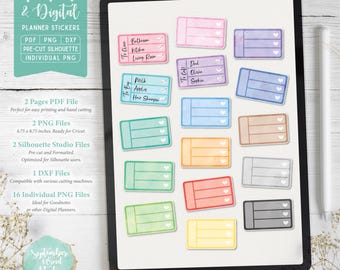 & Digital
PLANNER STICKERS
PDF | PNG | DXF
PRE-CUT SILHOUETTE
INDIVIDUAL PNG
2 Pages PDF File
Perfect for easy printing and hand cutting.
2 PNG Files
6.75 x 8.75 inches. Ready for Cricut.
2 Silhouette Studio Files
Pre-cut and Formatted.
Optimized for Silhouette users.
1 DXF Files
Compatible with various cutting machines.
16 Individual PNG Files
Ideal for Goodnotes
or other Digital Planners.
Bathroom
Kitchen
Living Room
Dad
Olivia
Sophia
Milk
Apples
Hair Shampoo